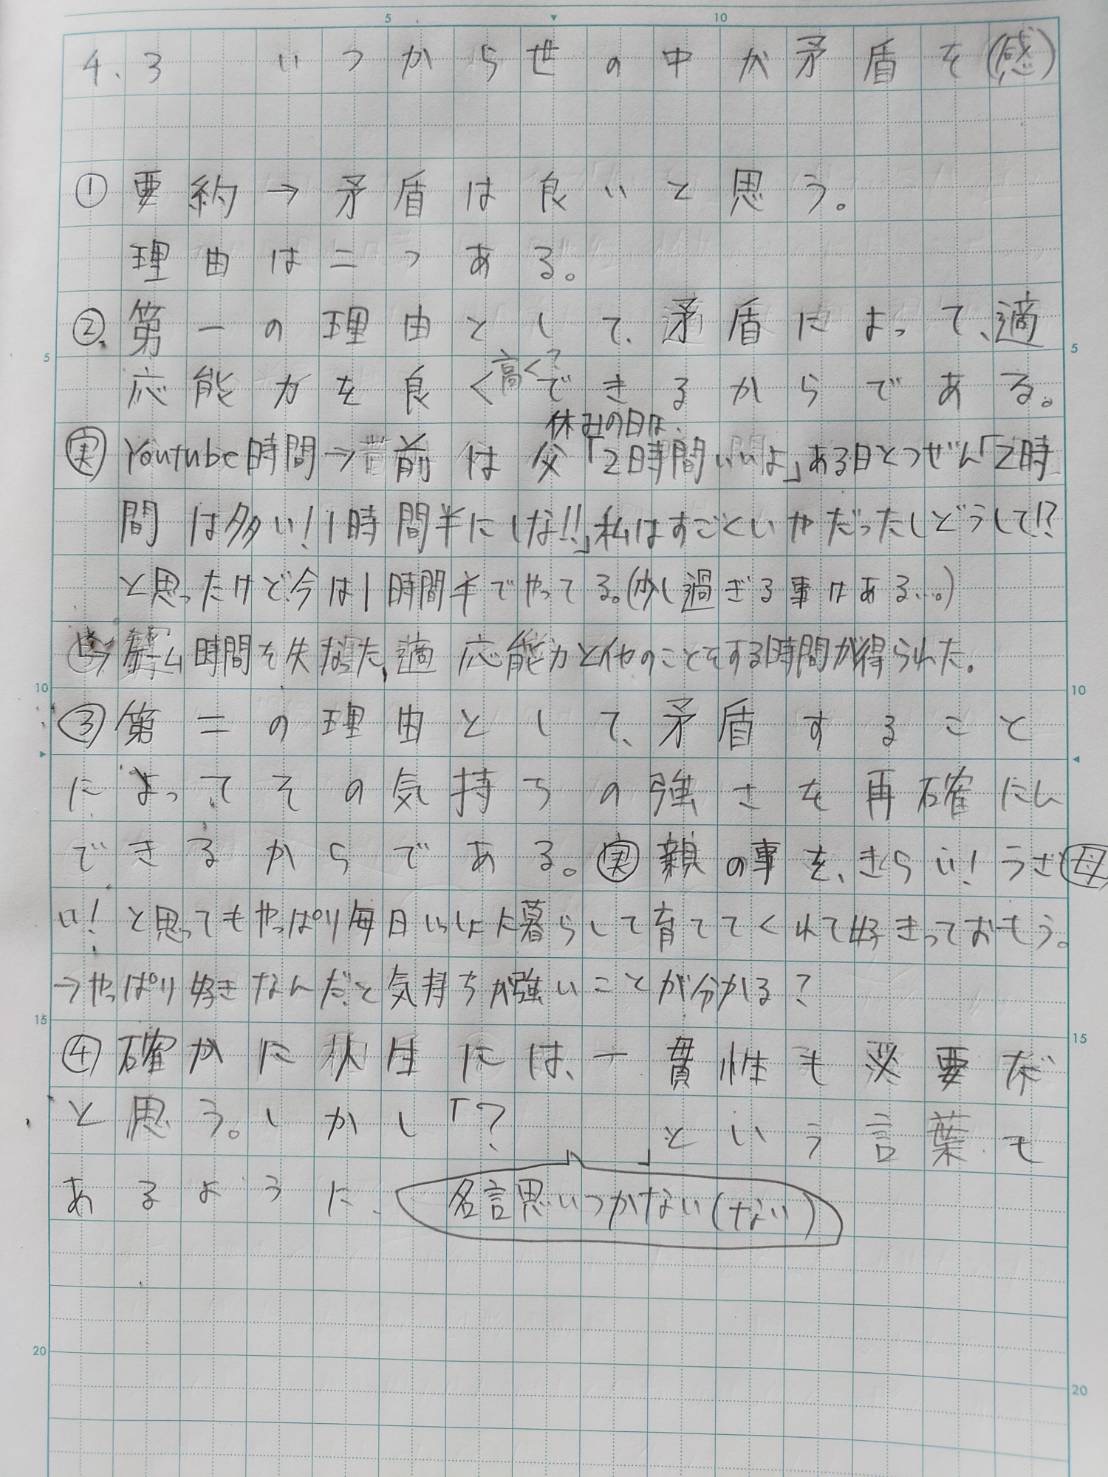 4.3 いつから世の中が矛盾を(感)
①要約→矛盾は良いと思う。
理由は二つある。
②第一の理由として、矛盾によって、適
応能力を良く 高く? できるからである。
休みの日は、
実 Youtube時間→前は父「2時間いいよ」ある日とつぜん「2時
間は多い!1時間半にしな!!」私はすごくいやだったしどうして!?
と思ったけど今は1時間半でやってる。(少し過ぎる事はある…。)
時間を失なった、適応能力と他のことをする時間が得られた。
③第二の理由として、矛盾すること
によってその気持ちの強さを再確にん
できるからである。実 親の事を、きらい!うざ 母
い!と思ってもやっぱり毎日いっしょに暮らして育ててくれて好きっておもう。
→やっぱり好きなんだと気持ちが強いことが分かる?
④確かに人生には、一貫性も必要だ
と思う。しかし「? 」という言葉も
あるように、 名言思いつかない(ない)